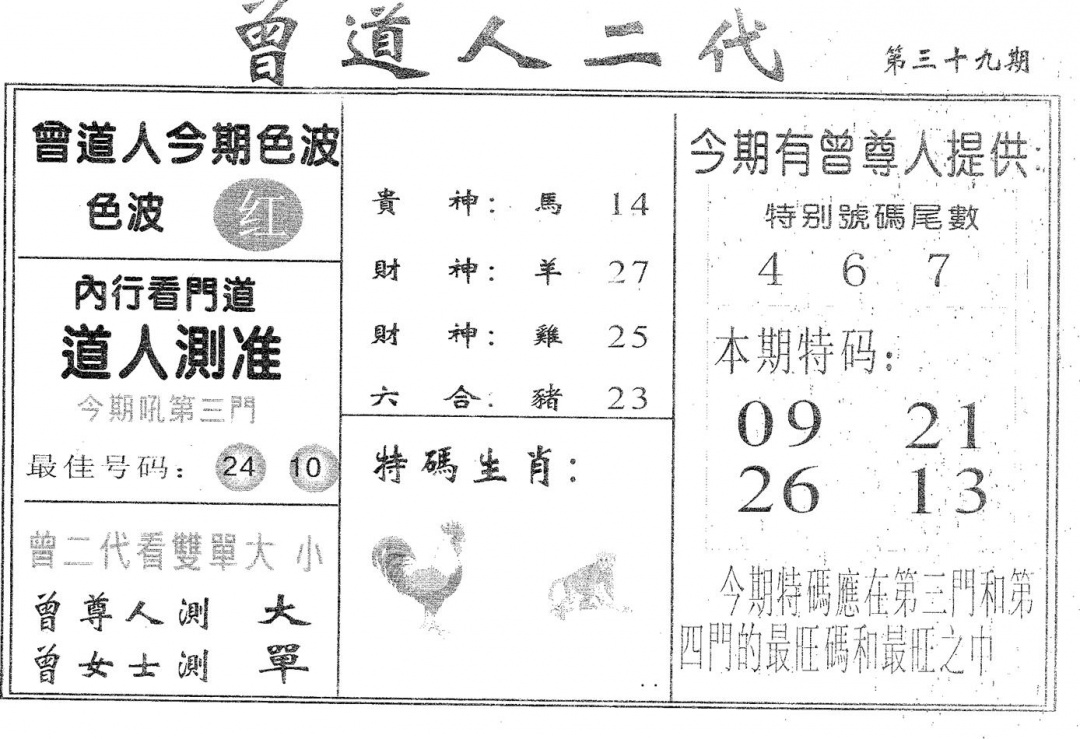 曾道人二代
第三十九期
曾道人今期色波
色波 红
內行看門道
道人測准
今期吼第三門
最佳号码: 24 10
曾二代看雙單大 小
曾尊人測 大
曾女士測 單
貴 神: 馬 14
財 神: 羊 27
財 神: 雞 25
六 合: 豬 23
特碼生肖:
今期有曾尊人提供:
特别號碼尾數
4 6 7
本期特码:
09 21
26 13
今期特碼應在第三門和第
四門的最旺碼和最旺之中